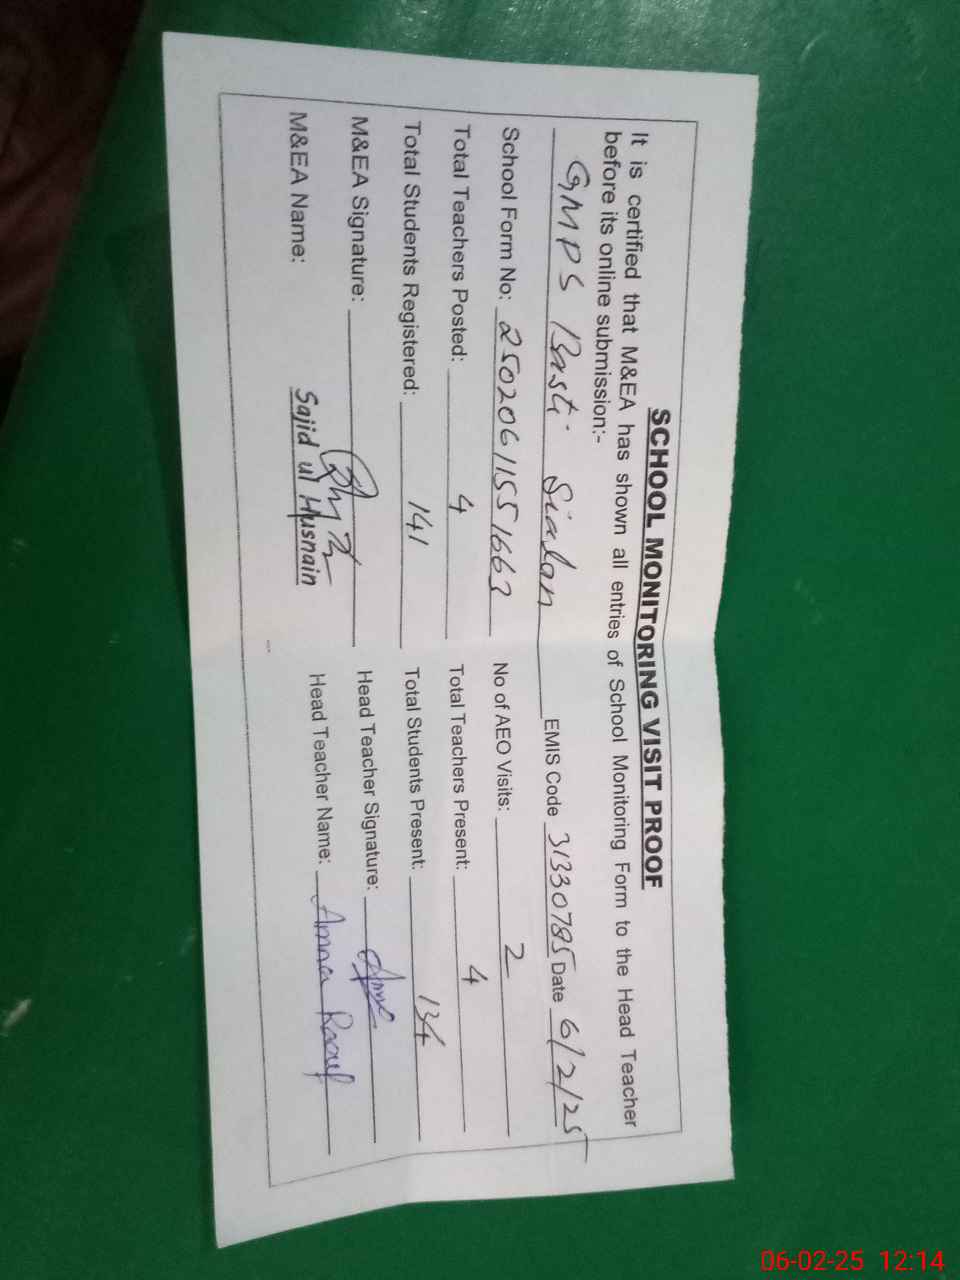 SCHOOL MONITORING VISIT PROOF
It is certified that M&EA has shown all entries of School Monitoring Form to the Head Teacher
before its online submission:-
GMPS Basti Sialan EMIS Code 31330785 Date 6/2/25
School Form No: 25020611551663 No of AEO Visits: 2
Total Teachers Posted: 4 Total Teachers Present: 4
Total Students Registered: 141 Total Students Present: 134
M&EA Signature: Head Teacher Signature:
M&EA Name: Sajid ul Husnain Head Teacher Name: Amna Raouf
06-02-25 12:14